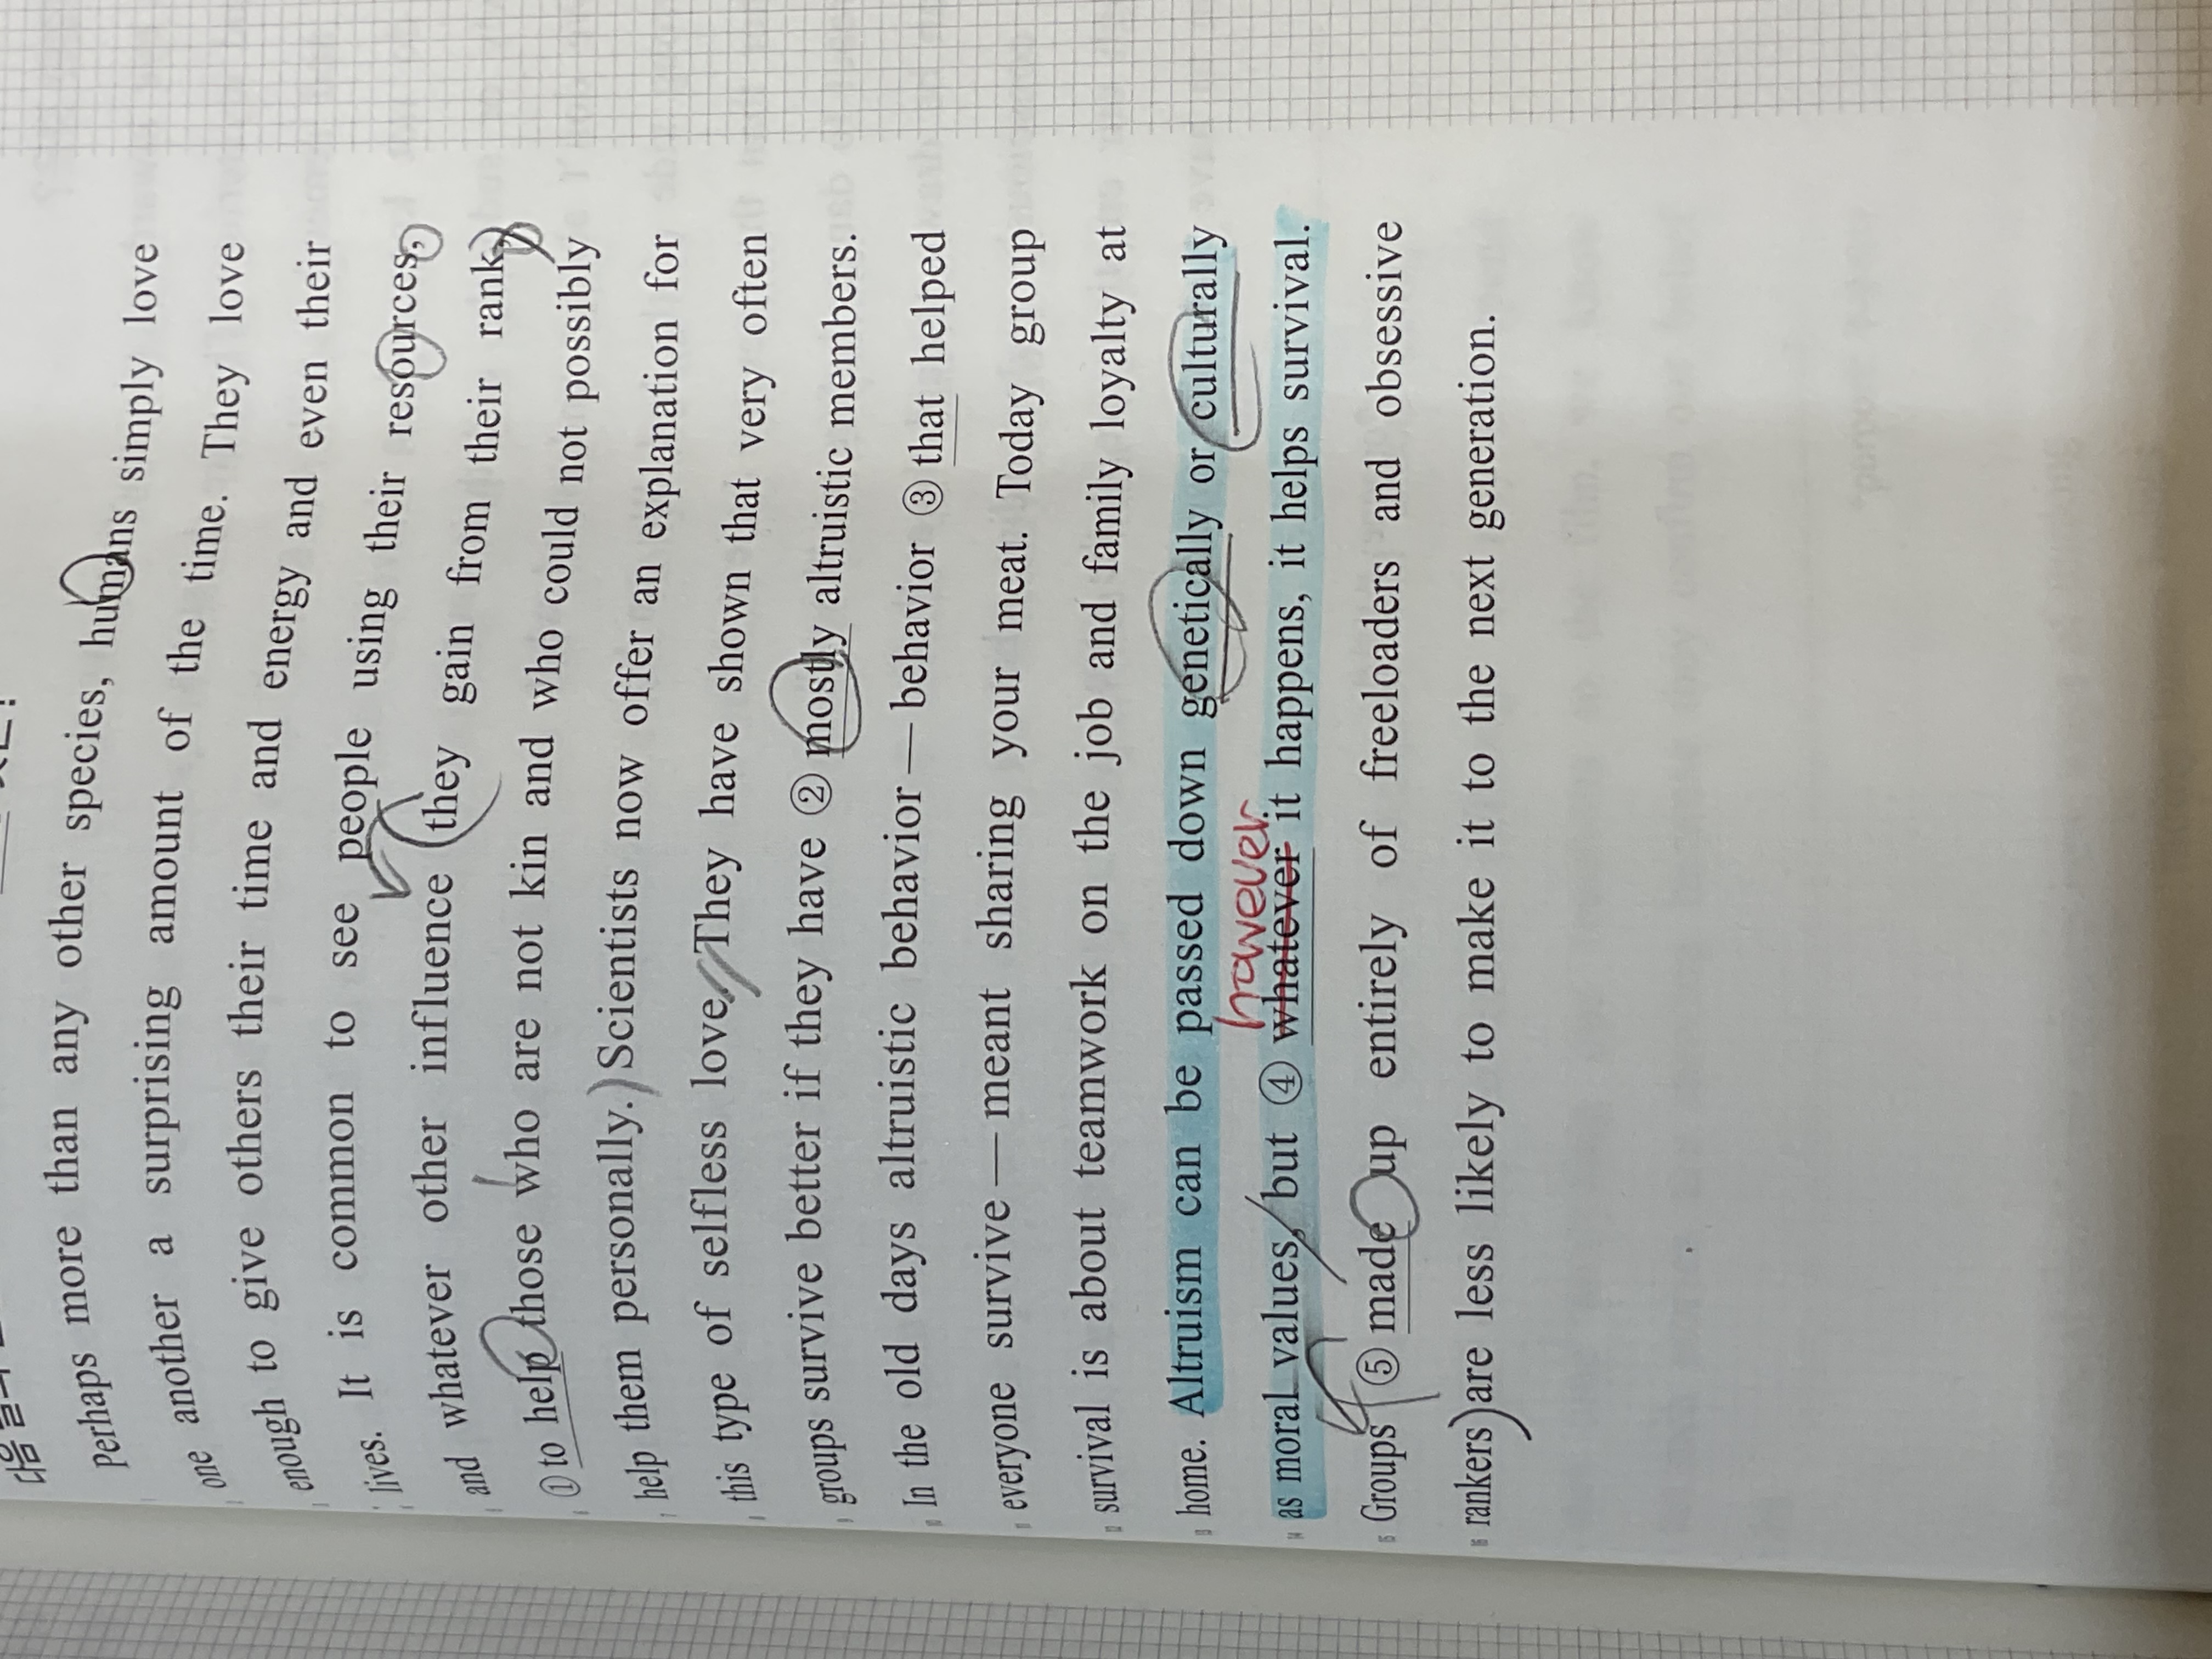 다음
perhaps more than any other species, humans simply love
one another a surprising amount of the time. They love
enough to give others their time and energy and even their
lives. It is common to see people using their resources,
and whatever other influence they gain from their rank,
① to help those who are not kin and who could not possibly
help them personally. Scientists now offer an explanation for
this type of selfless love. They have shown that very often
groups survive better if they have ② mostly altruistic members.
In the old days altruistic behavior — behavior ③ that helped
everyone survive — meant sharing your meat. Today group
survival is about teamwork on the job and family loyalty at
home. Altruism can be passed down genetically or culturally
however
as moral values, but ④ whatever it happens, it helps survival.
Groups ⑤ made up entirely of freeloaders and obsessive
rankers are less likely to make it to the next generation.